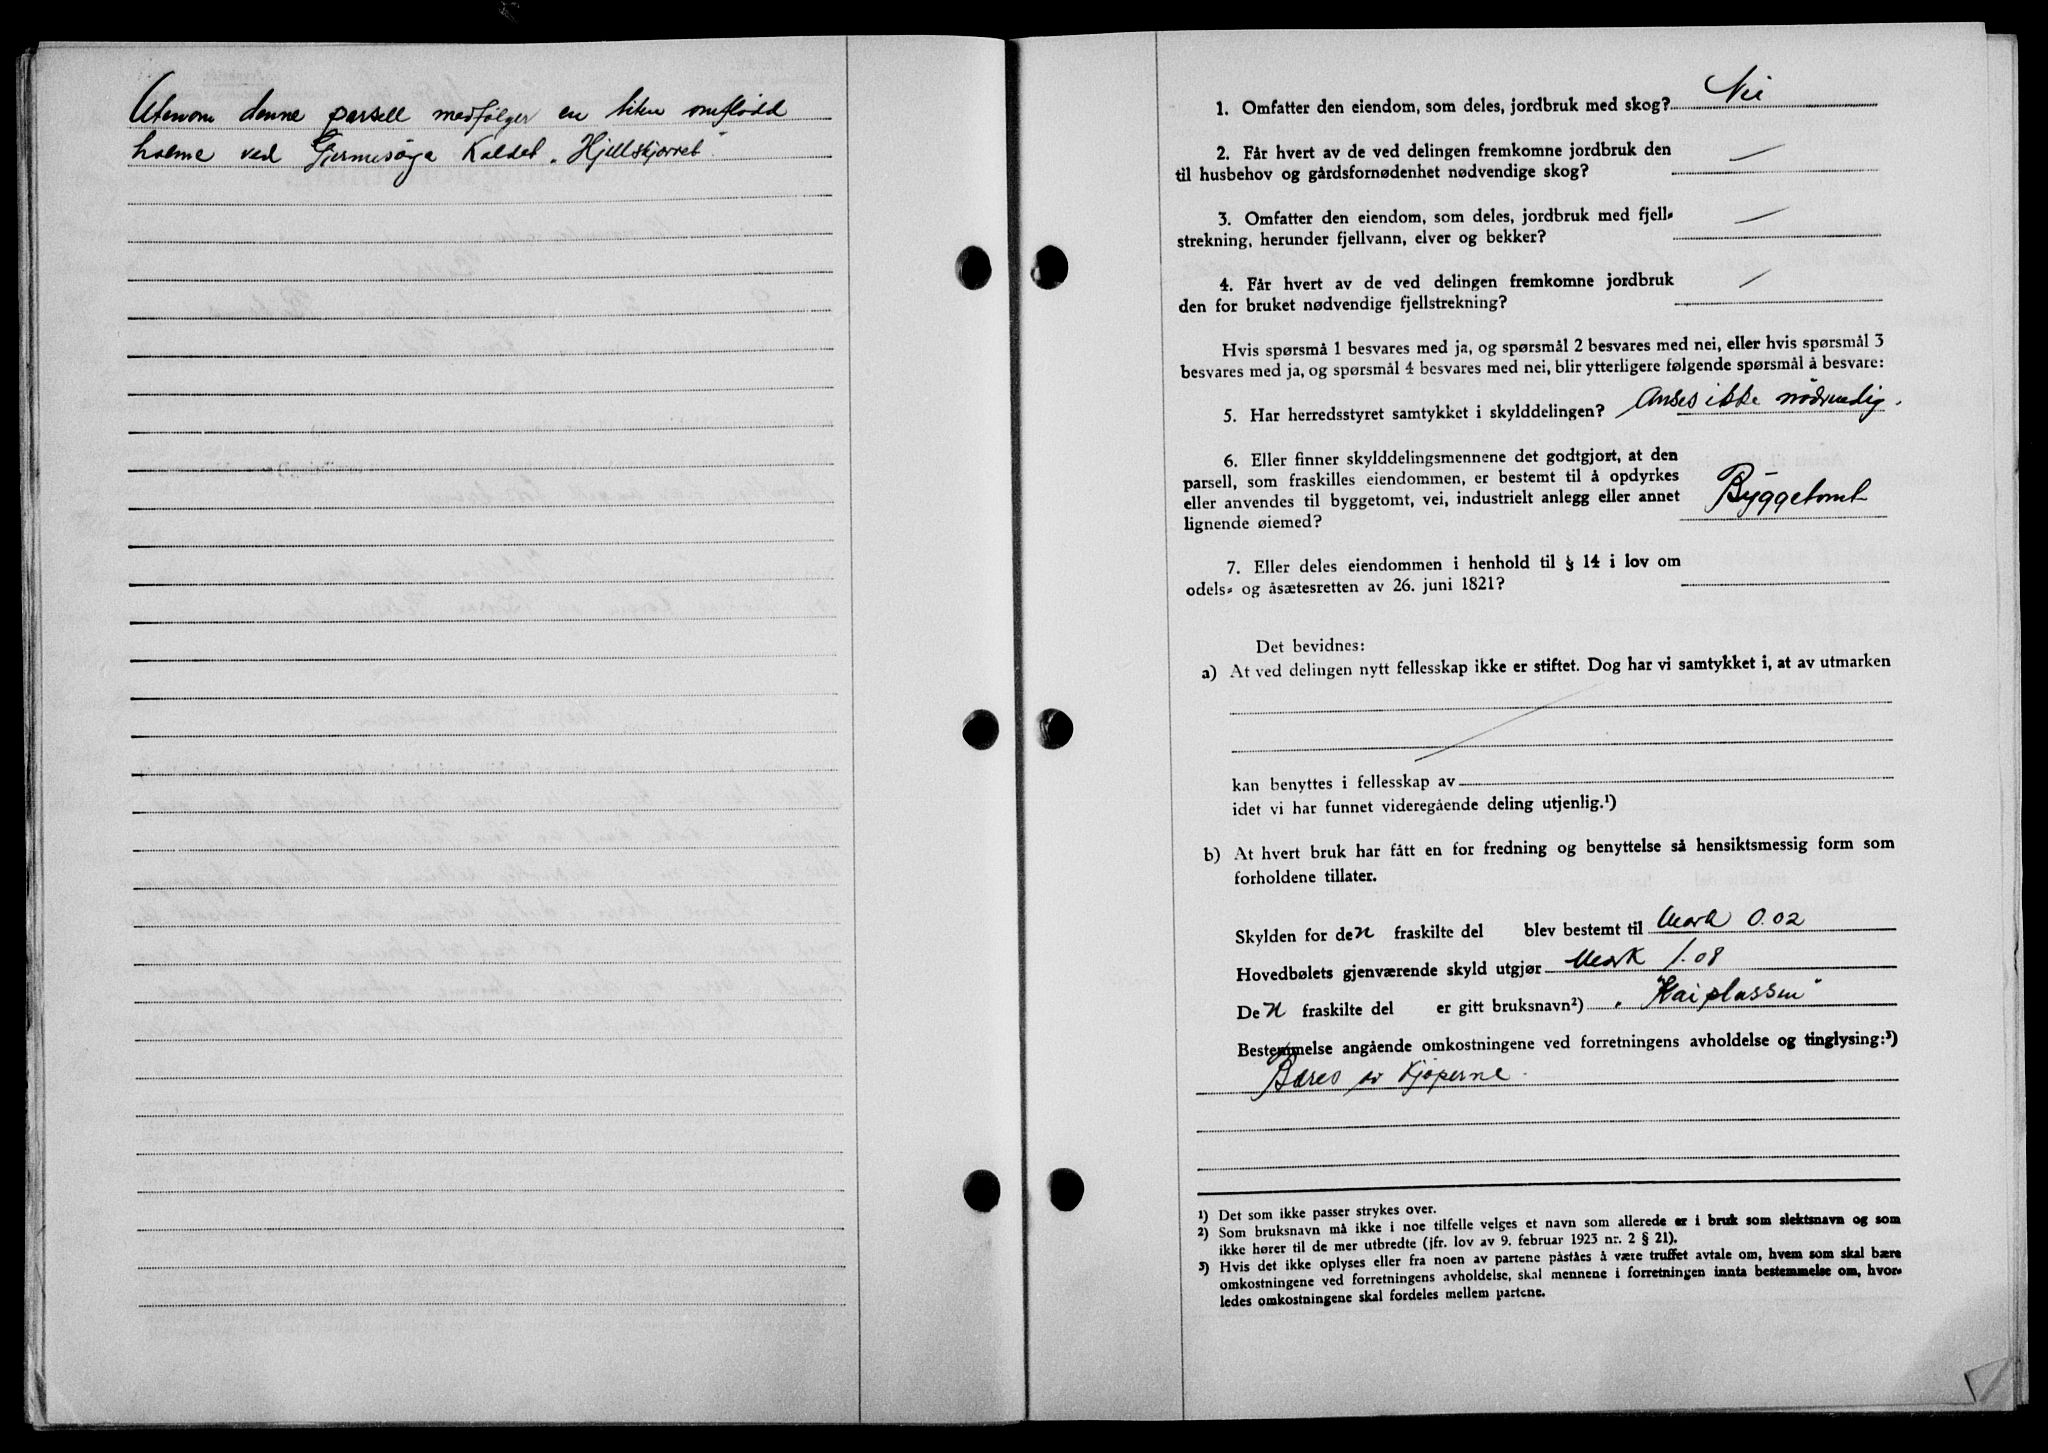 Utenom denne parsell medfølger en liten omflødd
holme ved Kaldet „Hjellskjæret"
1. Omfatter den eiendom, som deles, jordbruk med skog? Nei
2. Får hvert av de ved delingen fremkomne jordbruk den
til husbehov og gårdsfornødenhet nødvendige skog? —
3. Omfatter den eiendom, som deles, jordbruk med fjell-
strekning, herunder fjellvann, elver og bekker? —
4. Får hvert av de ved delingen fremkomne jordbruk
den for bruket nødvendige fjellstrekning? —
Hvis spørsmå 1 besvares med ja, og spørsmål 2 besvares med nei, eller hvis spørsmål 3
besvares med ja, og spørsmål 4 besvares med nei, blir ytterligere følgende spørsmål å besvare:
5. Har herredsstyret samtykket i skylddelingen? Anses ikke nödvendig.
6. Eller finner skylddelingsmennene det godtgjort, at den
parsell, som fraskilles eiendommen, er bestemt til å opdyrkes
eller anvendes til byggetomt, vei, industrielt anlegg eller annet
lignende øiemed? Byggetomt
7. Eller deles eiendommen i henhold til § 14 i lov om
odels- og åsætesretten av 26. juni 1821?
Det bevidnes:
a) At ved delingen nytt fellesskap ikke er stiftet. Dog har vi samtykket i, at av utmarken
kan benyttes i fellesskap av
idet vi har funnet videregående deling utjenlig.¹)
b) At hvert bruk har fått en for fredning og benyttelse så hensiktsmessig form som
forholdene tillater.
Skylden for den fraskilte del blev bestemt til Mark 0.02
Hovedbølets gjenværende skyld utgjør Mark 1.08
Den fraskilte del er gitt bruksnavn²) „Kaiplassen"
Bestemmelse angående omkostningene ved forretningens avholdelse og tinglysing:³)
Bæres av Kjøperne.
¹) Det som ikke passer strykes over.
²) Som bruksnavn må ikke i noe tilfelle velges et navn som allerede er i bruk som slektsnavn og som
ikke hører til de mer utbredte (jfr. lov av 9. februar 1923 nr. 2 § 21).
³) Hvis det ikke oplyses eller fra noen av partene påståes å være truffet avtale om, hvem som skal bære
omkostningene ved forretningens avholdelse, skal mennene i forretningen innta bestemmelse om, hvor-
ledes omkostningene skal fordeles mellem partene.